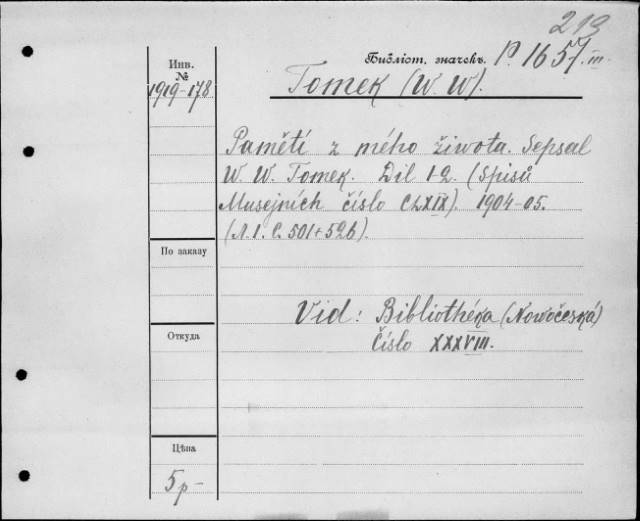 213
Инв.
№
1919-178
Библіот. значекъ. P. 1657.III
Tomek (W. W).
Pamětí z mého života. Sepsal
W. W. Tomek. Díl 1-2. (Spisů
Musejních číslo CLXIX). 1904-05.
(Л.1. С. 501+526).
По заказу
Vid: Bibliothéka (Nowočeská)
Číslo XXXVIII.
Откуда
Цѣна
5 р-